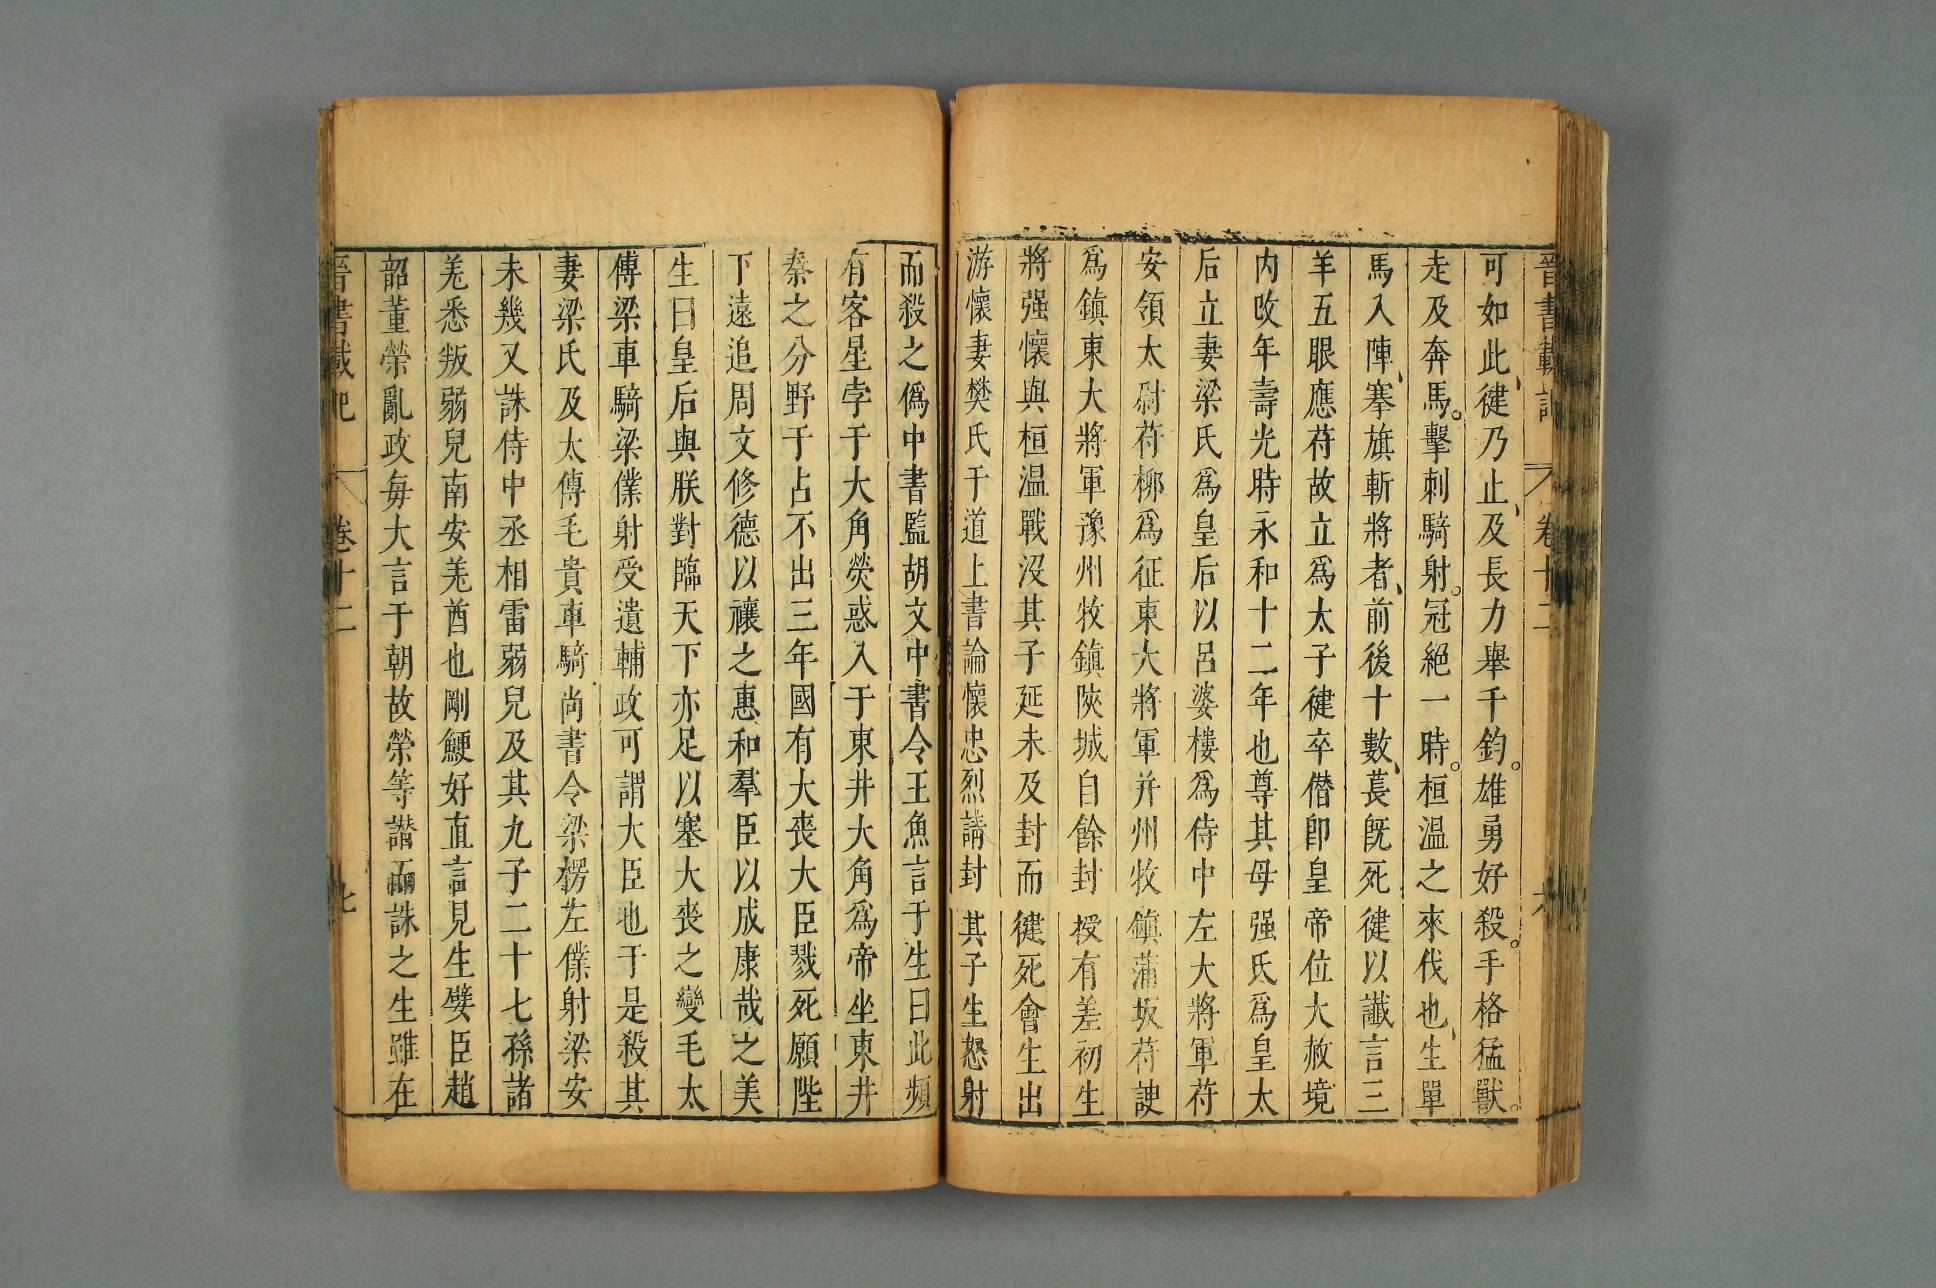 晉書載記 卷十二
可如此健乃止及長力舉千鈞雄勇好殺手格猛獸
走及奔馬擊刺騎射冠絕一時桓温之來伐也生單
馬入陣搴旗斬將者前後十數萇既死健以讖言三
羊五眼應苻故立爲太子健卒僭卽皇帝位大赦境
内改年壽光時永和十二年也尊其母强氏爲皇太
后立妻梁氏爲皇后以呂婆樓爲侍中左大將軍苻
安領太尉苻柳爲征東大將軍并州牧鎮蒲坂苻謏
爲鎮東大將軍豫州牧鎮陝城自餘封授有差初生
將强懷與桓温戰沒其子延未及封而健死會生出
游懷妻樊氏于道上書論懷忠烈請封其子生怒射
而殺之僞中書監胡文中書令王魚言于生曰此頻
有客星孛于大角熒惑入于東井大角爲帝坐東井
秦之分野于占不出三年國有大喪大臣戮死願陛
下遠追周文修德以禳之惠和羣臣以成康哉之美
生曰皇后與朕對臨天下亦足以塞大喪之變毛太
傅梁車騎梁僕射受遺輔政可謂大臣也于是殺其
妻梁氏及太傅毛貴車騎尚書令梁楞左僕射梁安
未幾又誅侍中丞相雷弱兒及其九子二十七孫諸
羌悉叛弱兒南安羌酋也剛鯁好直言見生嬖臣趙
韶董榮亂政每大言于朝故榮等譖而誅之生雖在
晉書載記 卷十二 七